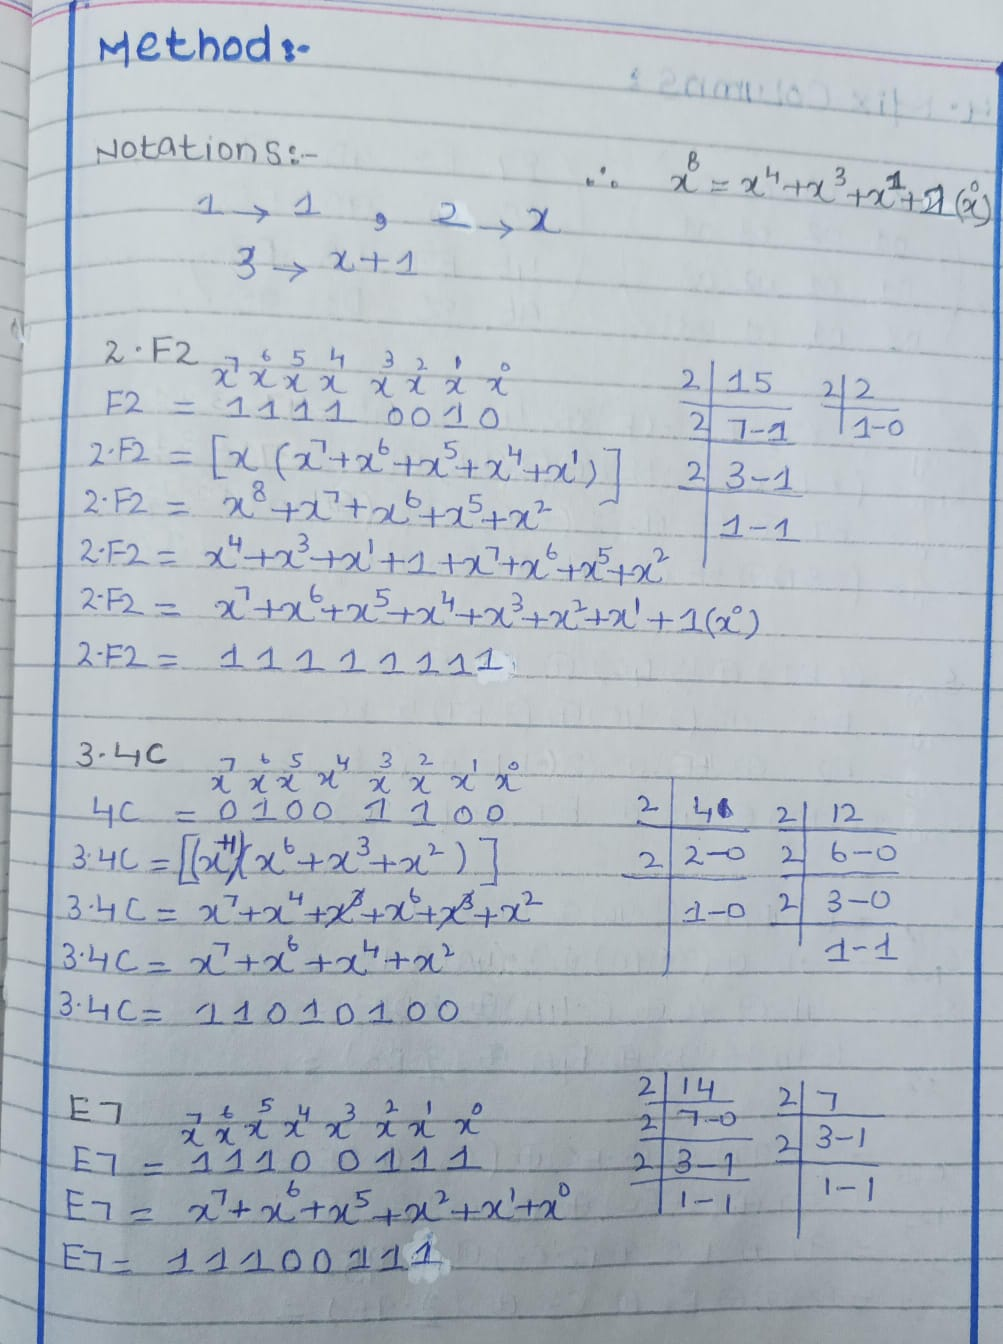 Method :-
Notations :-
∴ x⁸ = x⁴+x³+x¹+1(x⁰)
1 → 1 , 2 → x
3 → x+1
2·F2
x⁷ x⁶ x⁵ x⁴ x³ x² x¹ x⁰
F2 = 1 1 1 1 0 0 1 0
2·F2 = [x (x⁷+x⁶+x⁵+x⁴+x¹)]
2·F2 = x⁸+x⁷+x⁶+x⁵+x²
2·F2 = x⁴+x³+x¹+1+x⁷+x⁶+x⁵+x²
2·F2 = x⁷+x⁶+x⁵+x⁴+x³+x²+x¹+1(x⁰)
2·F2 = 1 1 1 1 1 1 1 1
2 | 15
2 | 7-1
2 | 3-1
1-1
2 | 2
1-0
3·4C
x⁷ x⁶ x⁵ x⁴ x³ x² x¹ x⁰
4C = 0 1 0 0 1 1 0 0
3·4C = [(x+1)(x⁶+x³+x²)]
3·4C = x⁷+x⁴+x³+x⁶+x³+x²
3·4C = x⁷+x⁶+x⁴+x²
3·4C = 1 1 0 1 0 1 0 0
2 | 4
2 | 2-0
1-0
2 | 12
2 | 6-0
2 | 3-0
1-1
E7
x⁷ x⁶ x⁵ x⁴ x³ x² x¹ x⁰
E7 = 1 1 1 0 0 1 1 1
E7 = x⁷+x⁶+x⁵+x²+x¹+x⁰
E7 = 1 1 1 0 0 1 1 1
2 | 14
2 | 7-0
2 | 3-1
1-1
2 | 7
2 | 3-1
1-1